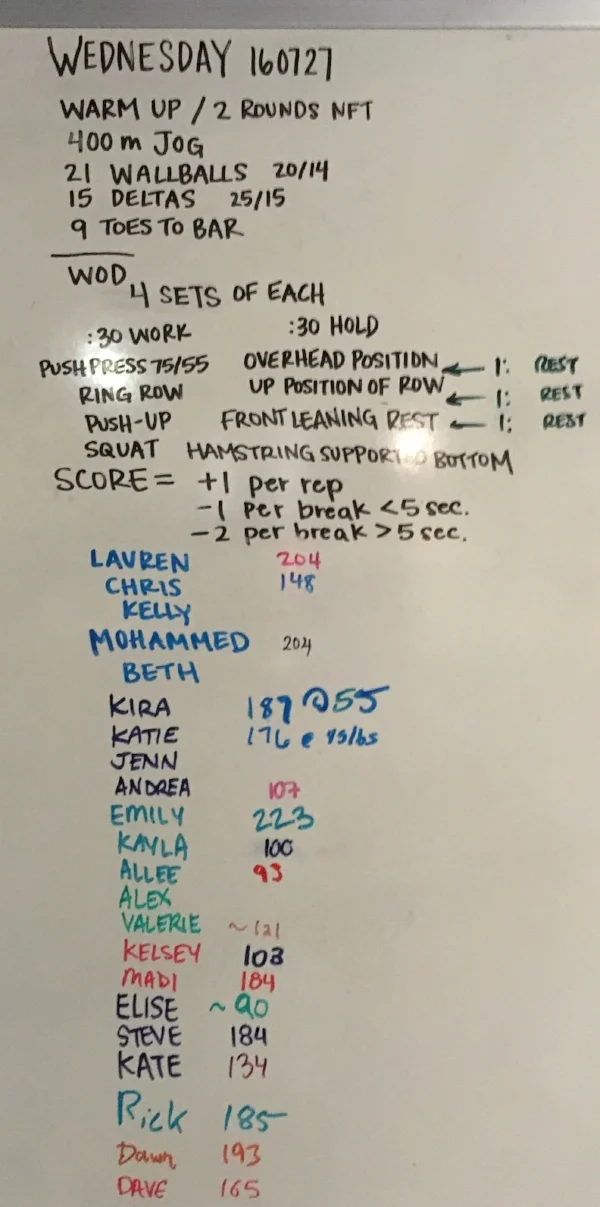 WEDNESDAY 160727
WARM UP / 2 ROUNDS NFT
400 m JOG
21 WALLBALLS 20/14
15 DELTAS 25/15
9 TOES TO BAR
WOD
4 SETS OF EACH
:30 WORK :30 HOLD
PUSH PRESS 75/55 OVERHEAD POSITION ← 1: REST
RING ROW UP POSITION OF ROW ← 1: REST
PUSH-UP FRONT LEANING REST ← 1: REST
SQUAT HAMSTRING SUPPORTED BOTTOM
SCORE = +1 per rep
-1 per break <5 sec.
-2 per break >5 sec.
LAUREN 204
CHRIS 148
KELLY
MOHAMMED 204
BETH
KIRA 187 @55
KATIE 176 @ 45lbs
JENN
ANDREA 107
EMILY 223
KAYLA 100
ALLEE 93
ALEX
VALERIE ~121
KELSEY 103
MADI 184
ELISE ~90
STEVE 184
KATE 134
Rick 185
Dawn 193
DAVE 165